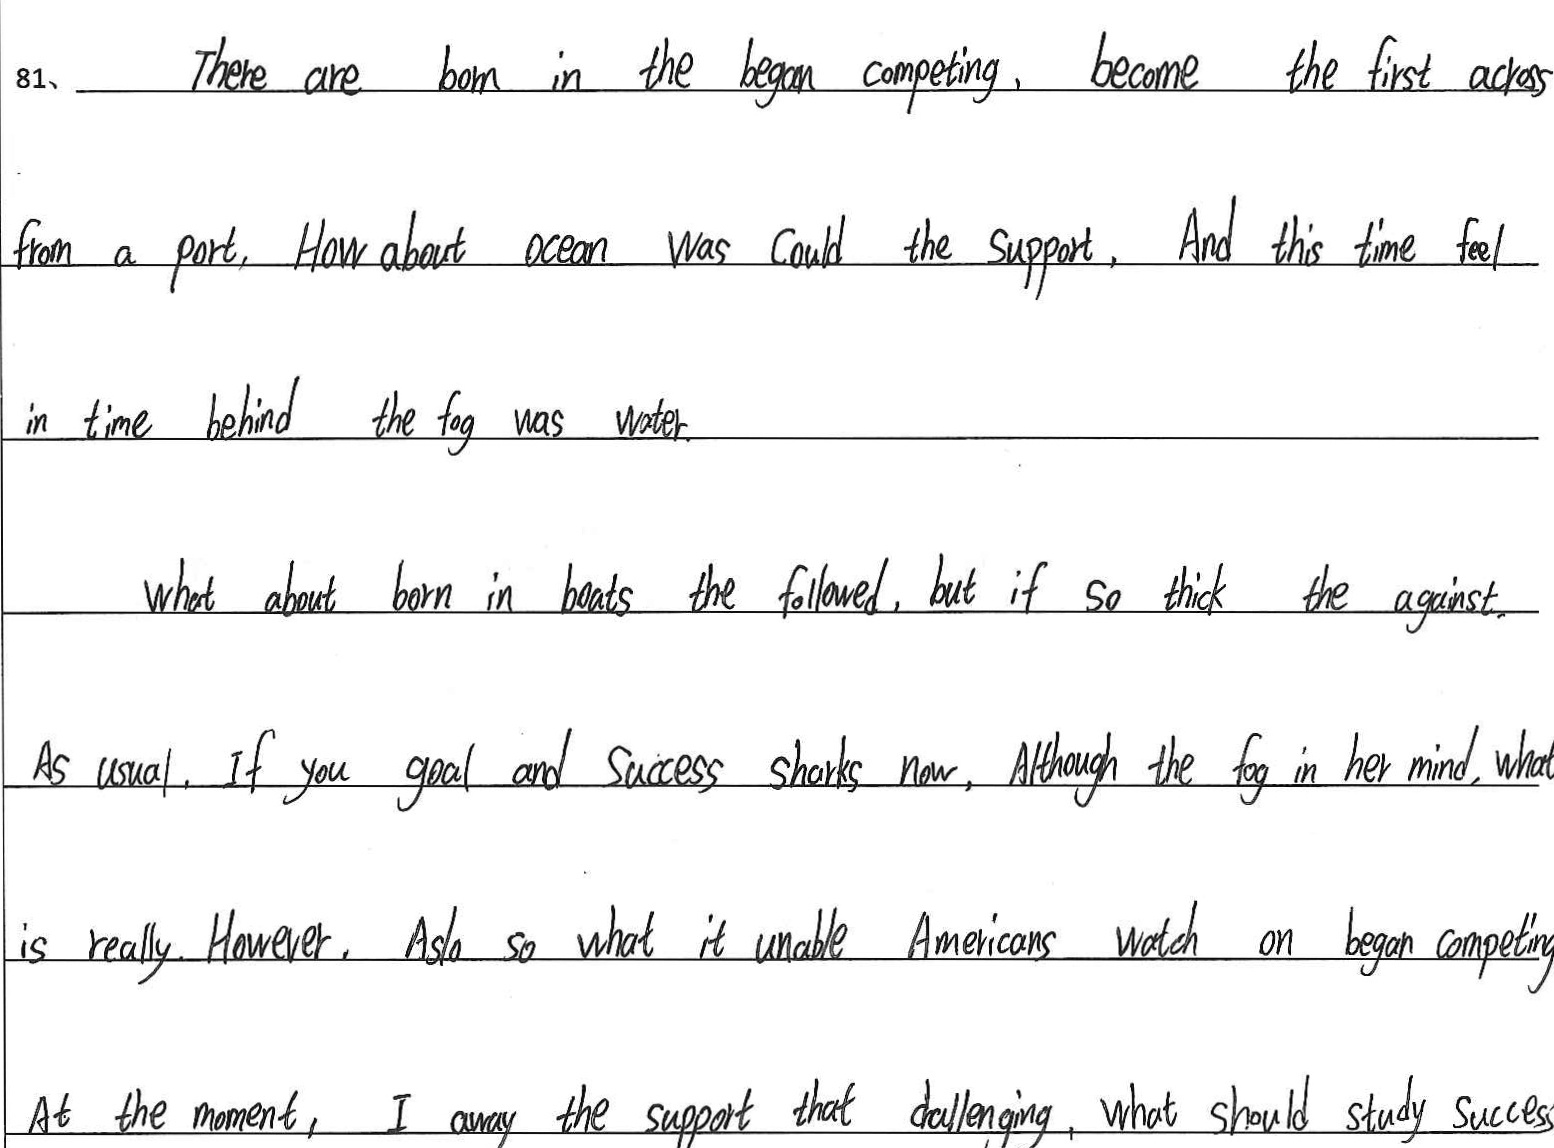 81、 There are born in the began competing, become the first across
from a port, How about ocean was could the support, And this time feel
in time behind the fog was water.
What about born in boats the followed, but if so thick the against.
As usual, If you goal and success sharks now, Although the fog in her mind, what
is really. However, Aslo so what it unable Americans watch on began competing
At the moment, I away the support that dallenging, what should study success